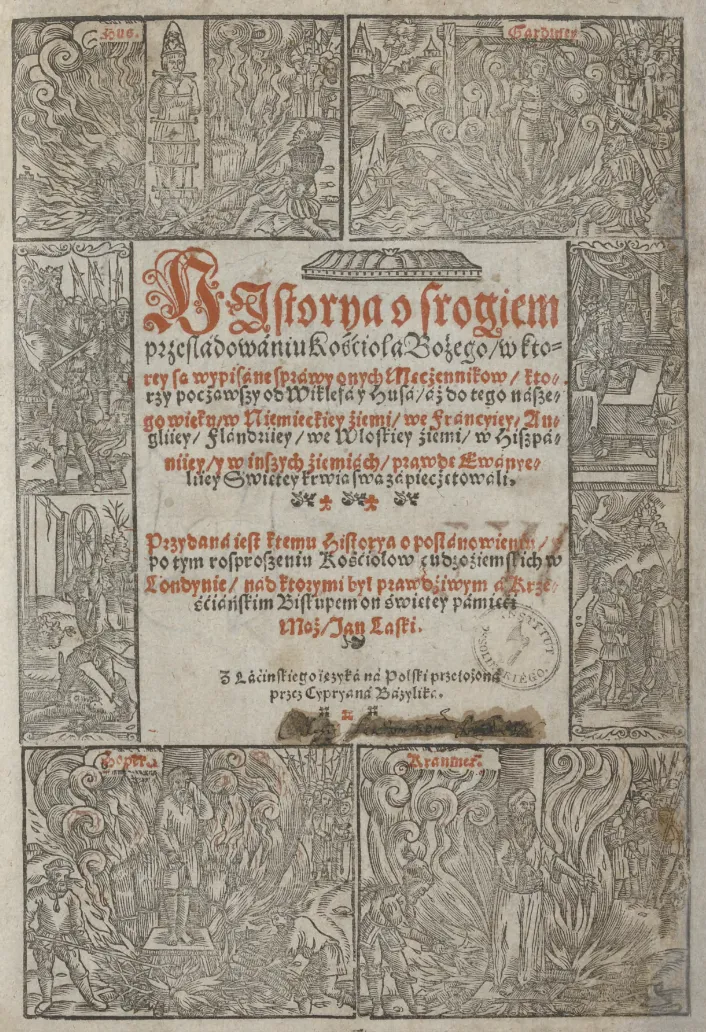 Hus.
Gardiner
HIstorya o srogiem
przesladowániu Kośćiołá Bożego / w kto-
rey są wypisáne spráwy onych Męcżennikow / kto-
rzy pocżąwszy od Wiklefá y Husá / áż do tego násze-
go wieku / w Niemieckiey źiemi / we Fráncyiey / An-
gliiey / Flándriiey / we Włoskiey źiemi / w Hiszpá-
niiey / y w inszych źiemiách / prawdę Ewányge-
liiey Swiętey krwią swą zápiecżętowáli.
Przydána iest ktemu Historya o postánowieniu /
po tym rosproszeniu Kośćiołow cudzoźiemskich w
Londynie / nád ktorymi był prawdźiwym á Krze-
śćiáńskim Biskupem on świętey pámięći
Mąż / Jan Laski.
Z Láćińskiego ięzyká ná Polski przełożona
przez Cypryaná Bázyliká.
INSTYTUT
Hoper.
Kranmer.